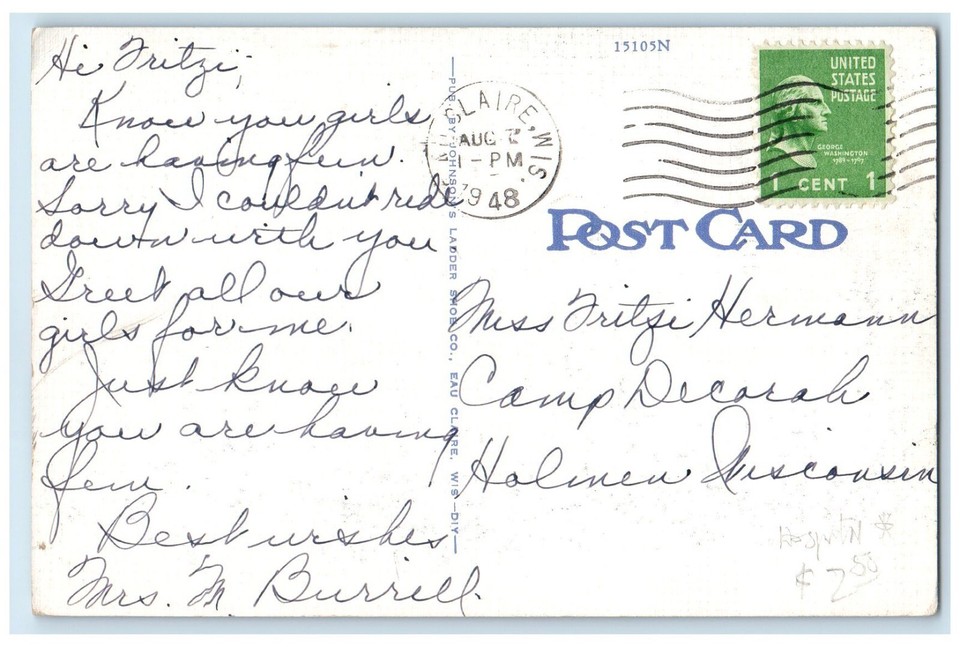 Hi Fritzi,
Know you girls
are having fun.
Sorry I couldn't ride
down with you
Greet all our
girls for me.
Just know
you are having
fun.
Best wishes
Mrs. M Burrell.
PUB. BY JOHNSON'S LADDER SHOE CO., EAU CLAIRE, WIS.—DIY—
15105N
EAU CLAIRE, WIS.
AUG
1-PM
1948
UNITED
STATES
POSTAGE
GEORGE
WASHINGTON
1789-1797
1 CENT 1
POST CARD
Miss Fritzi Hermann
Camp Decorah
Holmen Wisconsin